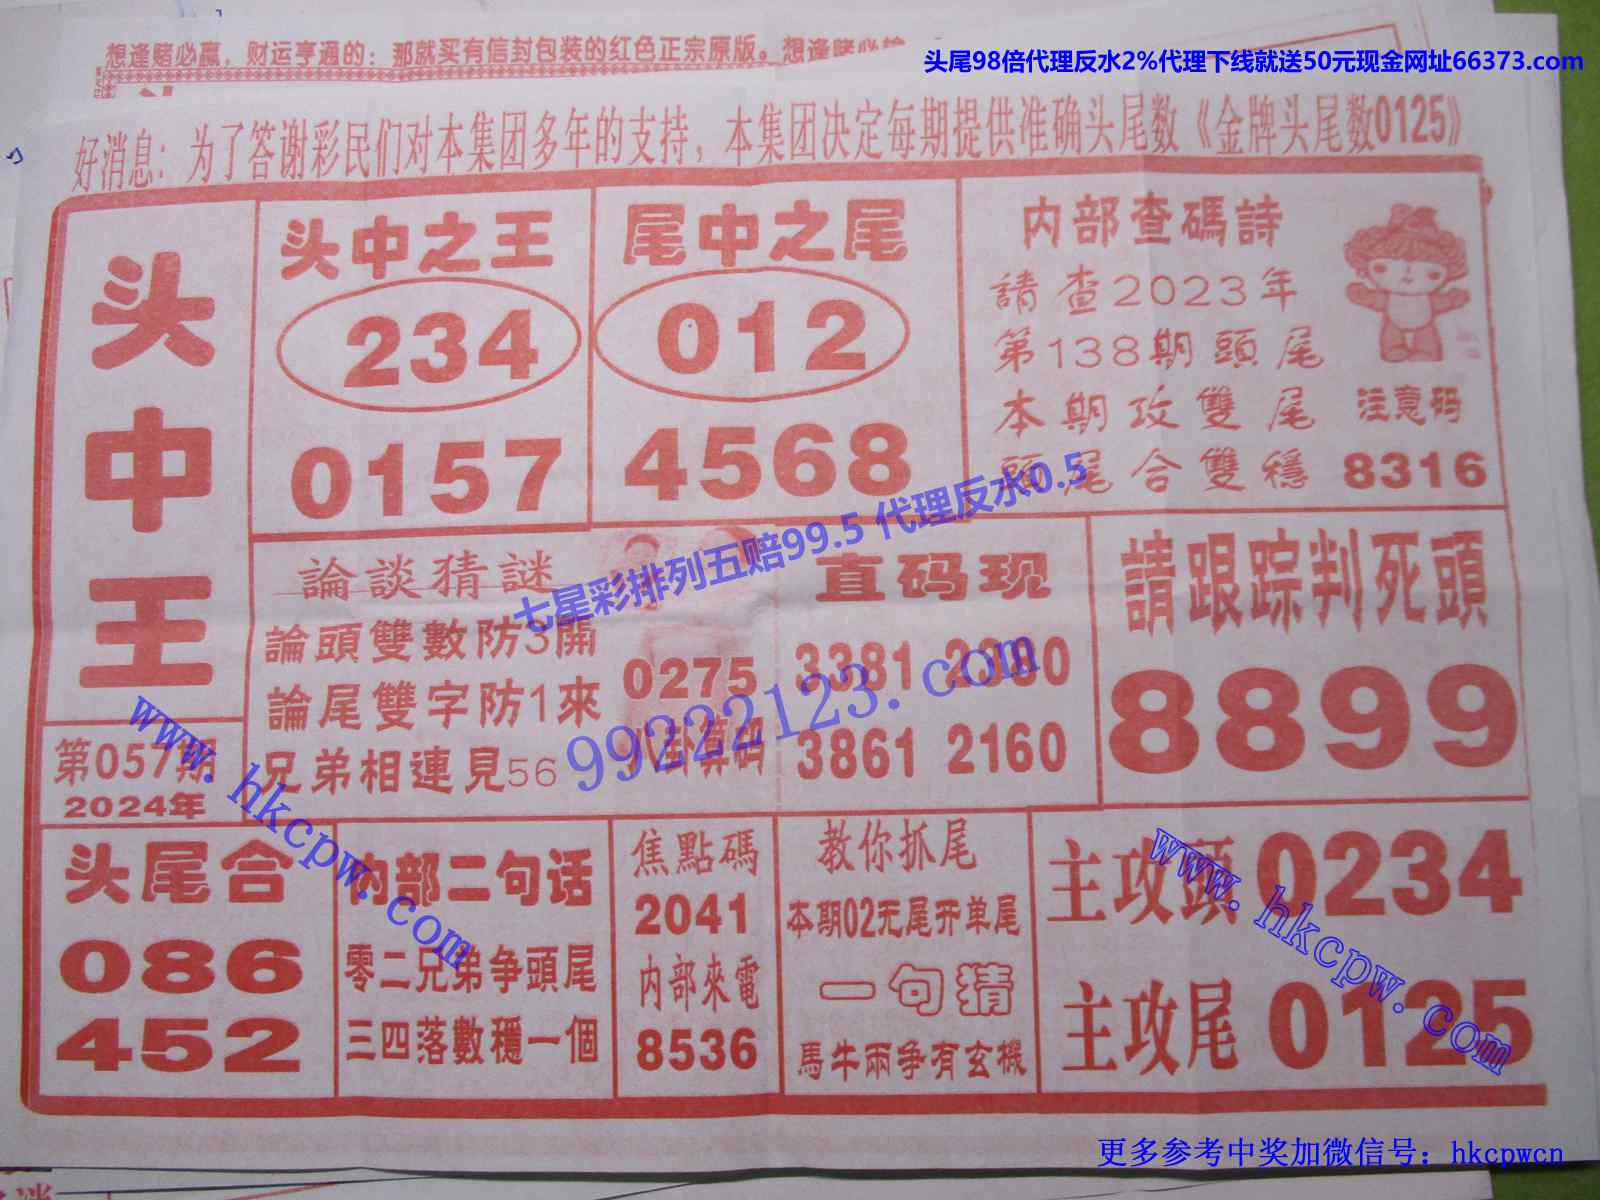 想逢赌必赢，财运亨通的：那就买有信封包装的红色正宗原版。想逢赌必
头尾98倍代理反水2%代理下线就送50元现金网址66373.com
好消息：为了答谢彩民们对本集团多年的支持，本集团决定每期提供准确头尾数《金牌头尾数0125》
头中王
第057期
2024年
头中之王
234
0157
尾中之尾
012
4568
内部查碼詩
請查2023年
第138期頭尾
本期攻雙尾
頭尾合雙穩
注意码
8316
論談猜謎
論頭雙數防3開
論尾雙字防1來
兄弟相連見56
0275
八卦算码
直码现
3381 2380
3861 2160
請跟踪判死頭
8899
七星彩排列五赔99.5 代理反水0.5
99222123.com
www.hkcpw.com
头尾合
086
452
内部二句话
零二兄弟争頭尾
三四落數穩一個
焦點碼
2041
内部來電
8536
教你抓尾
本期02无尾开单尾
一句猜
馬牛兩争有玄機
主攻頭0234
主攻尾0125
www.hkcpw.com
更多参考中奖加微信号：hkcpwcn